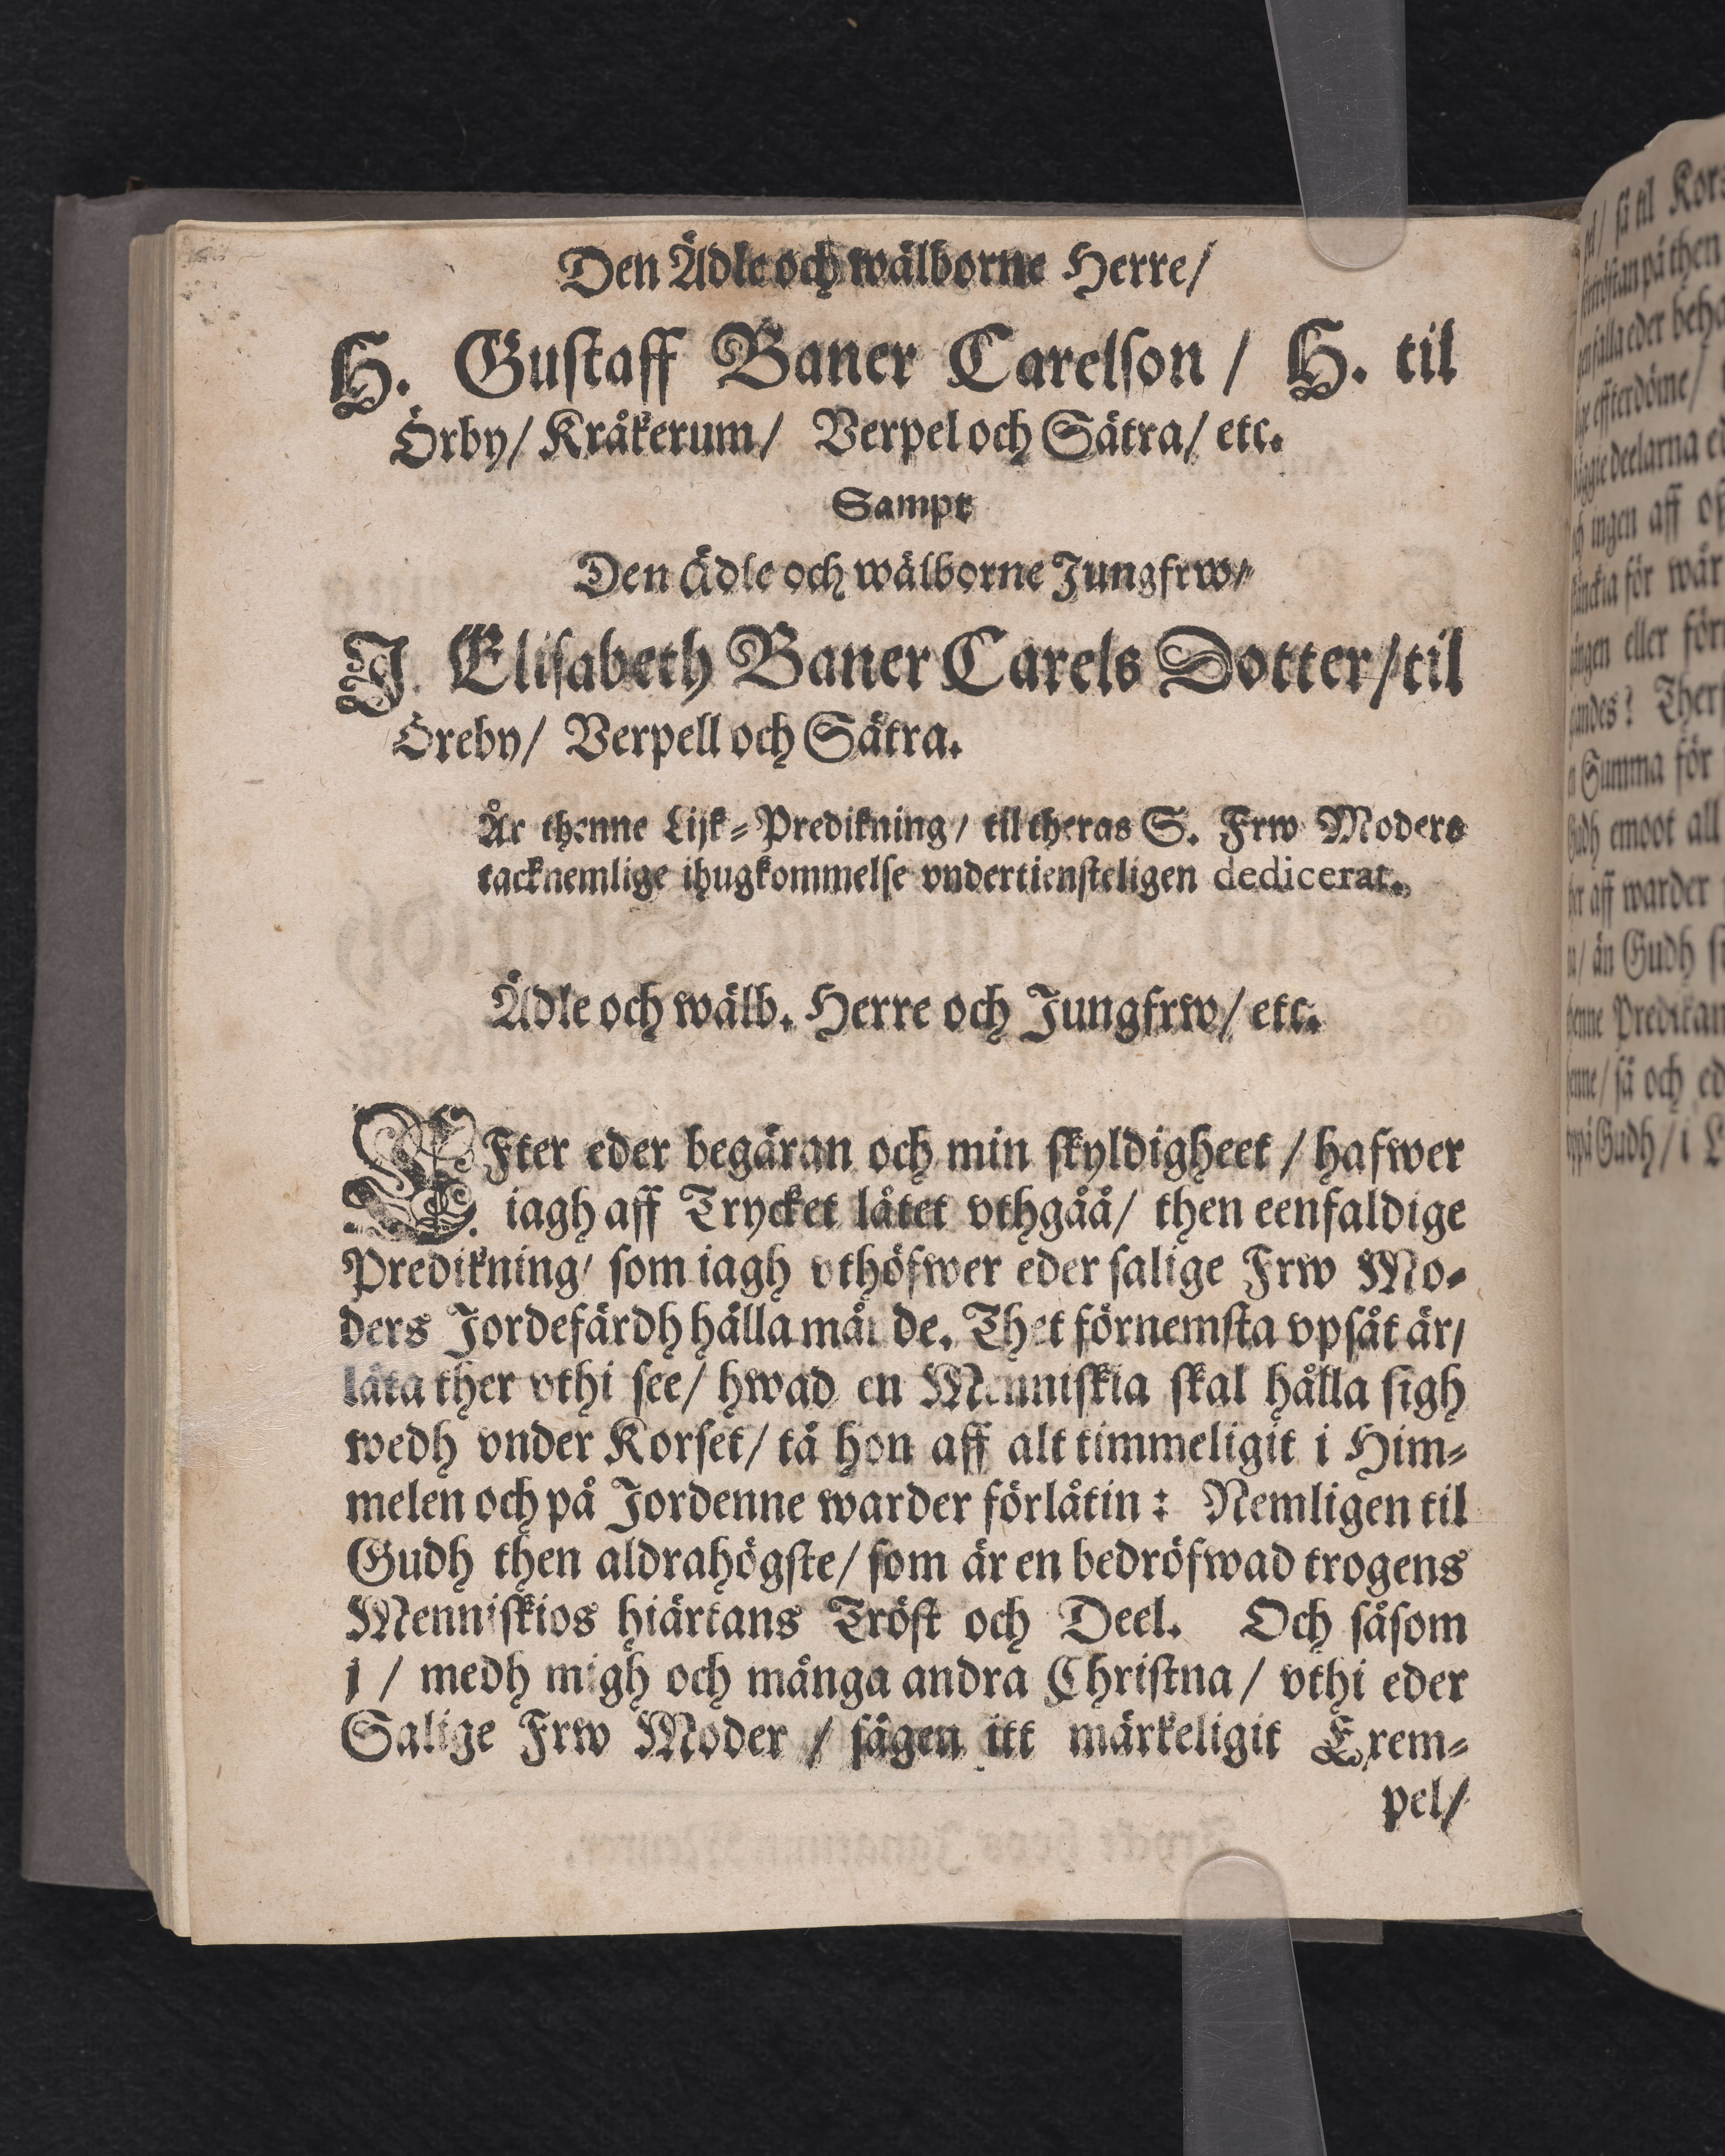 Den Ädle och wälborne Herre/
H. Gustaff Baner Carelson / H. til
Örby/ Kråkerum/ Verpel och Sätra/ etc.
Sampt
Den ädle och wälborne Jungfrw/
J. Elisabeth Baner Carels Dotter/ til
Öreby/ Verpell och Sätra.
Är thenne Lijk-Predikning/ til theras S. Frw Moders
tacknemlige ihugkommelse vndertiensteligen dedicerat.
Ädle och wälb. Herre och Jungfrw/ etc.
EFter eder begäran och min skyldigheet / hafwer
iagh aff Trycket låtet vthgåå/ then eenfaldige
Predikning/ som iagh vthöfwer eder salige Frw Mo-
ders Jordefärdh hålla mån de. Thet förnemsta vpsåt är/
låta ther vthi see/ hwad en Menniskia skal hålla sigh
wedh vnder Korset/ tå hon aff alt timmeligit i Him-
melen och på Jordenne warder förlåtin: Nemligen til
Gudh then aldrahögste/ som är en bedröfwad trogens
Menniskios hiärtans Tröst och Deel. Och såsom
j / medh migh och många andra Christna/ vthi eder
Salige Frw Moder / sågen itt märkeligit Exem-
pel/